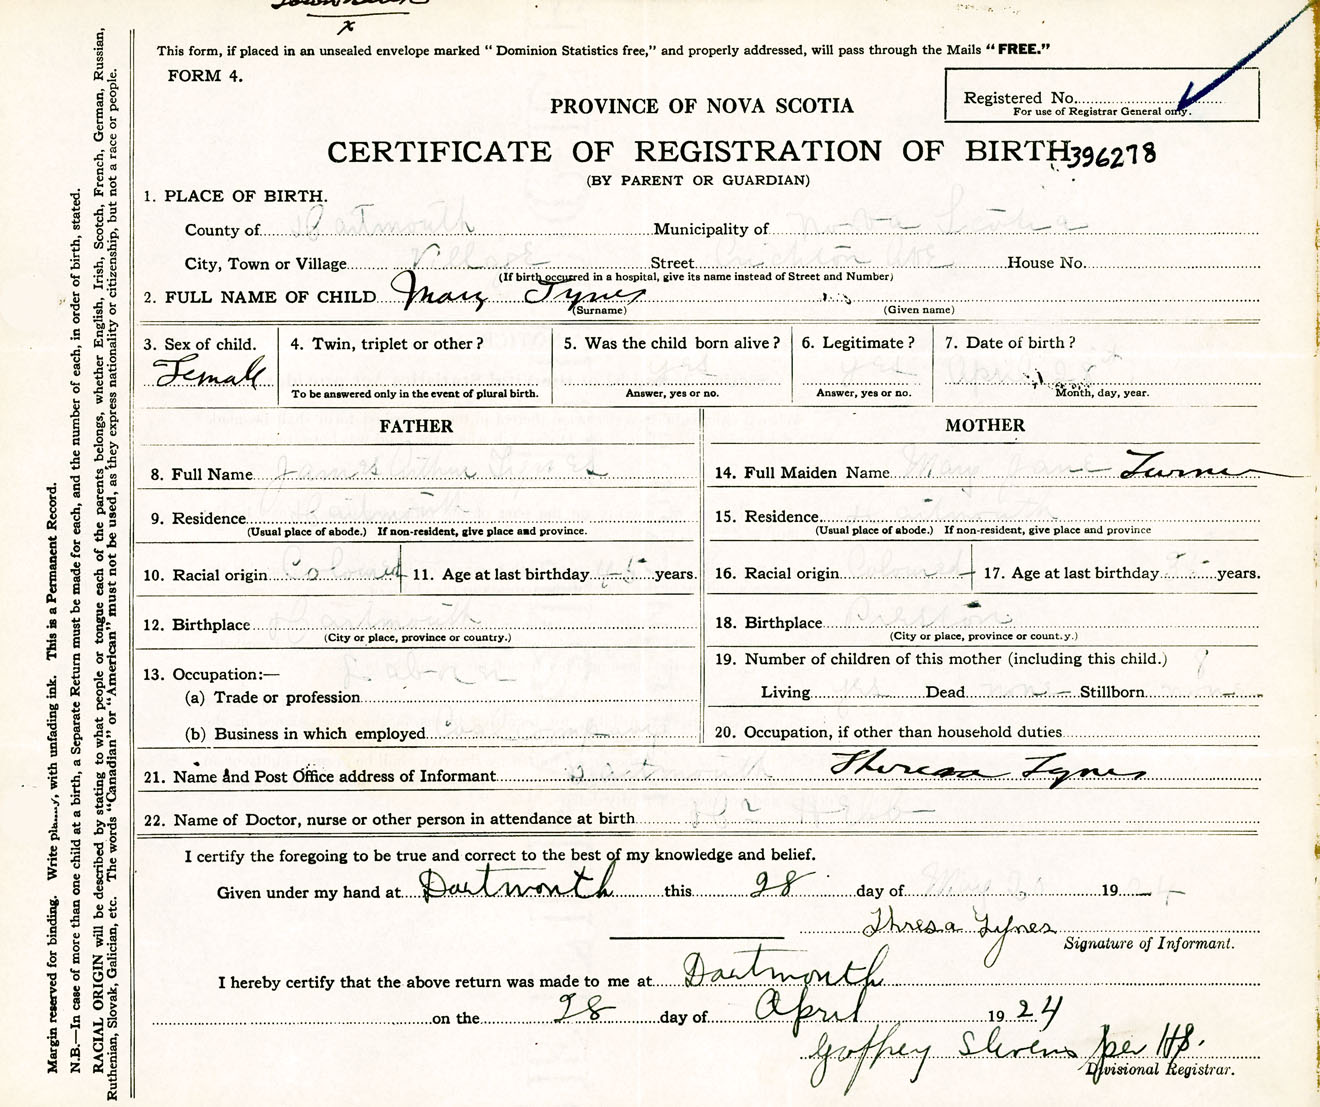 x
This form, if placed in an unsealed envelope marked “Dominion Statistics free,” and properly addressed, will pass through the Mails “FREE.”
FORM 4.
Registered No.
For use of Registrar General only.
PROVINCE OF NOVA SCOTIA
CERTIFICATE OF REGISTRATION OF BIRTH 396278
(BY PARENT OR GUARDIAN)
1. PLACE OF BIRTH.
County of Dartmouth Municipality of Nova Scotia
City, Town or Village Village Street Crichton Ave. House No.
(If birth occurred in a hospital, give its name instead of Street and Number)
2. FULL NAME OF CHILD Mary Tynes
(Surname) (Given name)
3. Sex of child. 4. Twin, triplet or other? 5. Was the child born alive? 6. Legitimate? 7. Date of birth?
Female yes yes April 28
To be answered only in the event of plural birth. Answer, yes or no. Answer, yes or no. Month, day, year.
FATHER
8. Full Name James Arthur Tynes
9. Residence Dartmouth
(Usual place of abode.) If non-resident, give place and province.
10. Racial origin Coloured 11. Age at last birthday 45 years.
12. Birthplace Dartmouth
(City or place, province or country.)
13. Occupation:—
(a) Trade or profession
(b) Business in which employed
MOTHER
14. Full Maiden Name Mary Jane Turner
15. Residence Dartmouth
(Usual place of abode.) If non-resident, give place and province
16. Racial origin Coloured 17. Age at last birthday years.
18. Birthplace Preston
(City or place, province or county.)
19. Number of children of this mother (including this child.)
Living yes Dead none Stillborn none
20. Occupation, if other than household duties
21. Name and Post Office address of Informant Dartmouth Theresa Tynes
22. Name of Doctor, nurse or other person in attendance at birth
I certify the foregoing to be true and correct to the best of my knowledge and belief.
Given under my hand at Dartmouth this 28 day of May 19
Thresa Tynes
Signature of Informant.
I hereby certify that the above return was made to me at Dartmouth
on the 28 day of April 19 24
Goffrey Stevens per HS.
Divisional Registrar.
Margin reserved for binding. Write plainly, with unfading ink. This is a Permanent Record.
N.B.—In case of more than one child at a birth, a Separate Return must be made for each, and the number of each, in order of birth, stated.
RACIAL ORIGIN will be described by stating to what people or tongue each of the parents belongs, whether English, Irish, Scotch, French, German, Russian,
Ruthenian, Slovak, Galician, etc. The words “Canadian” or “American” must not be used, as they express nationality or citizenship, but not a race or people.